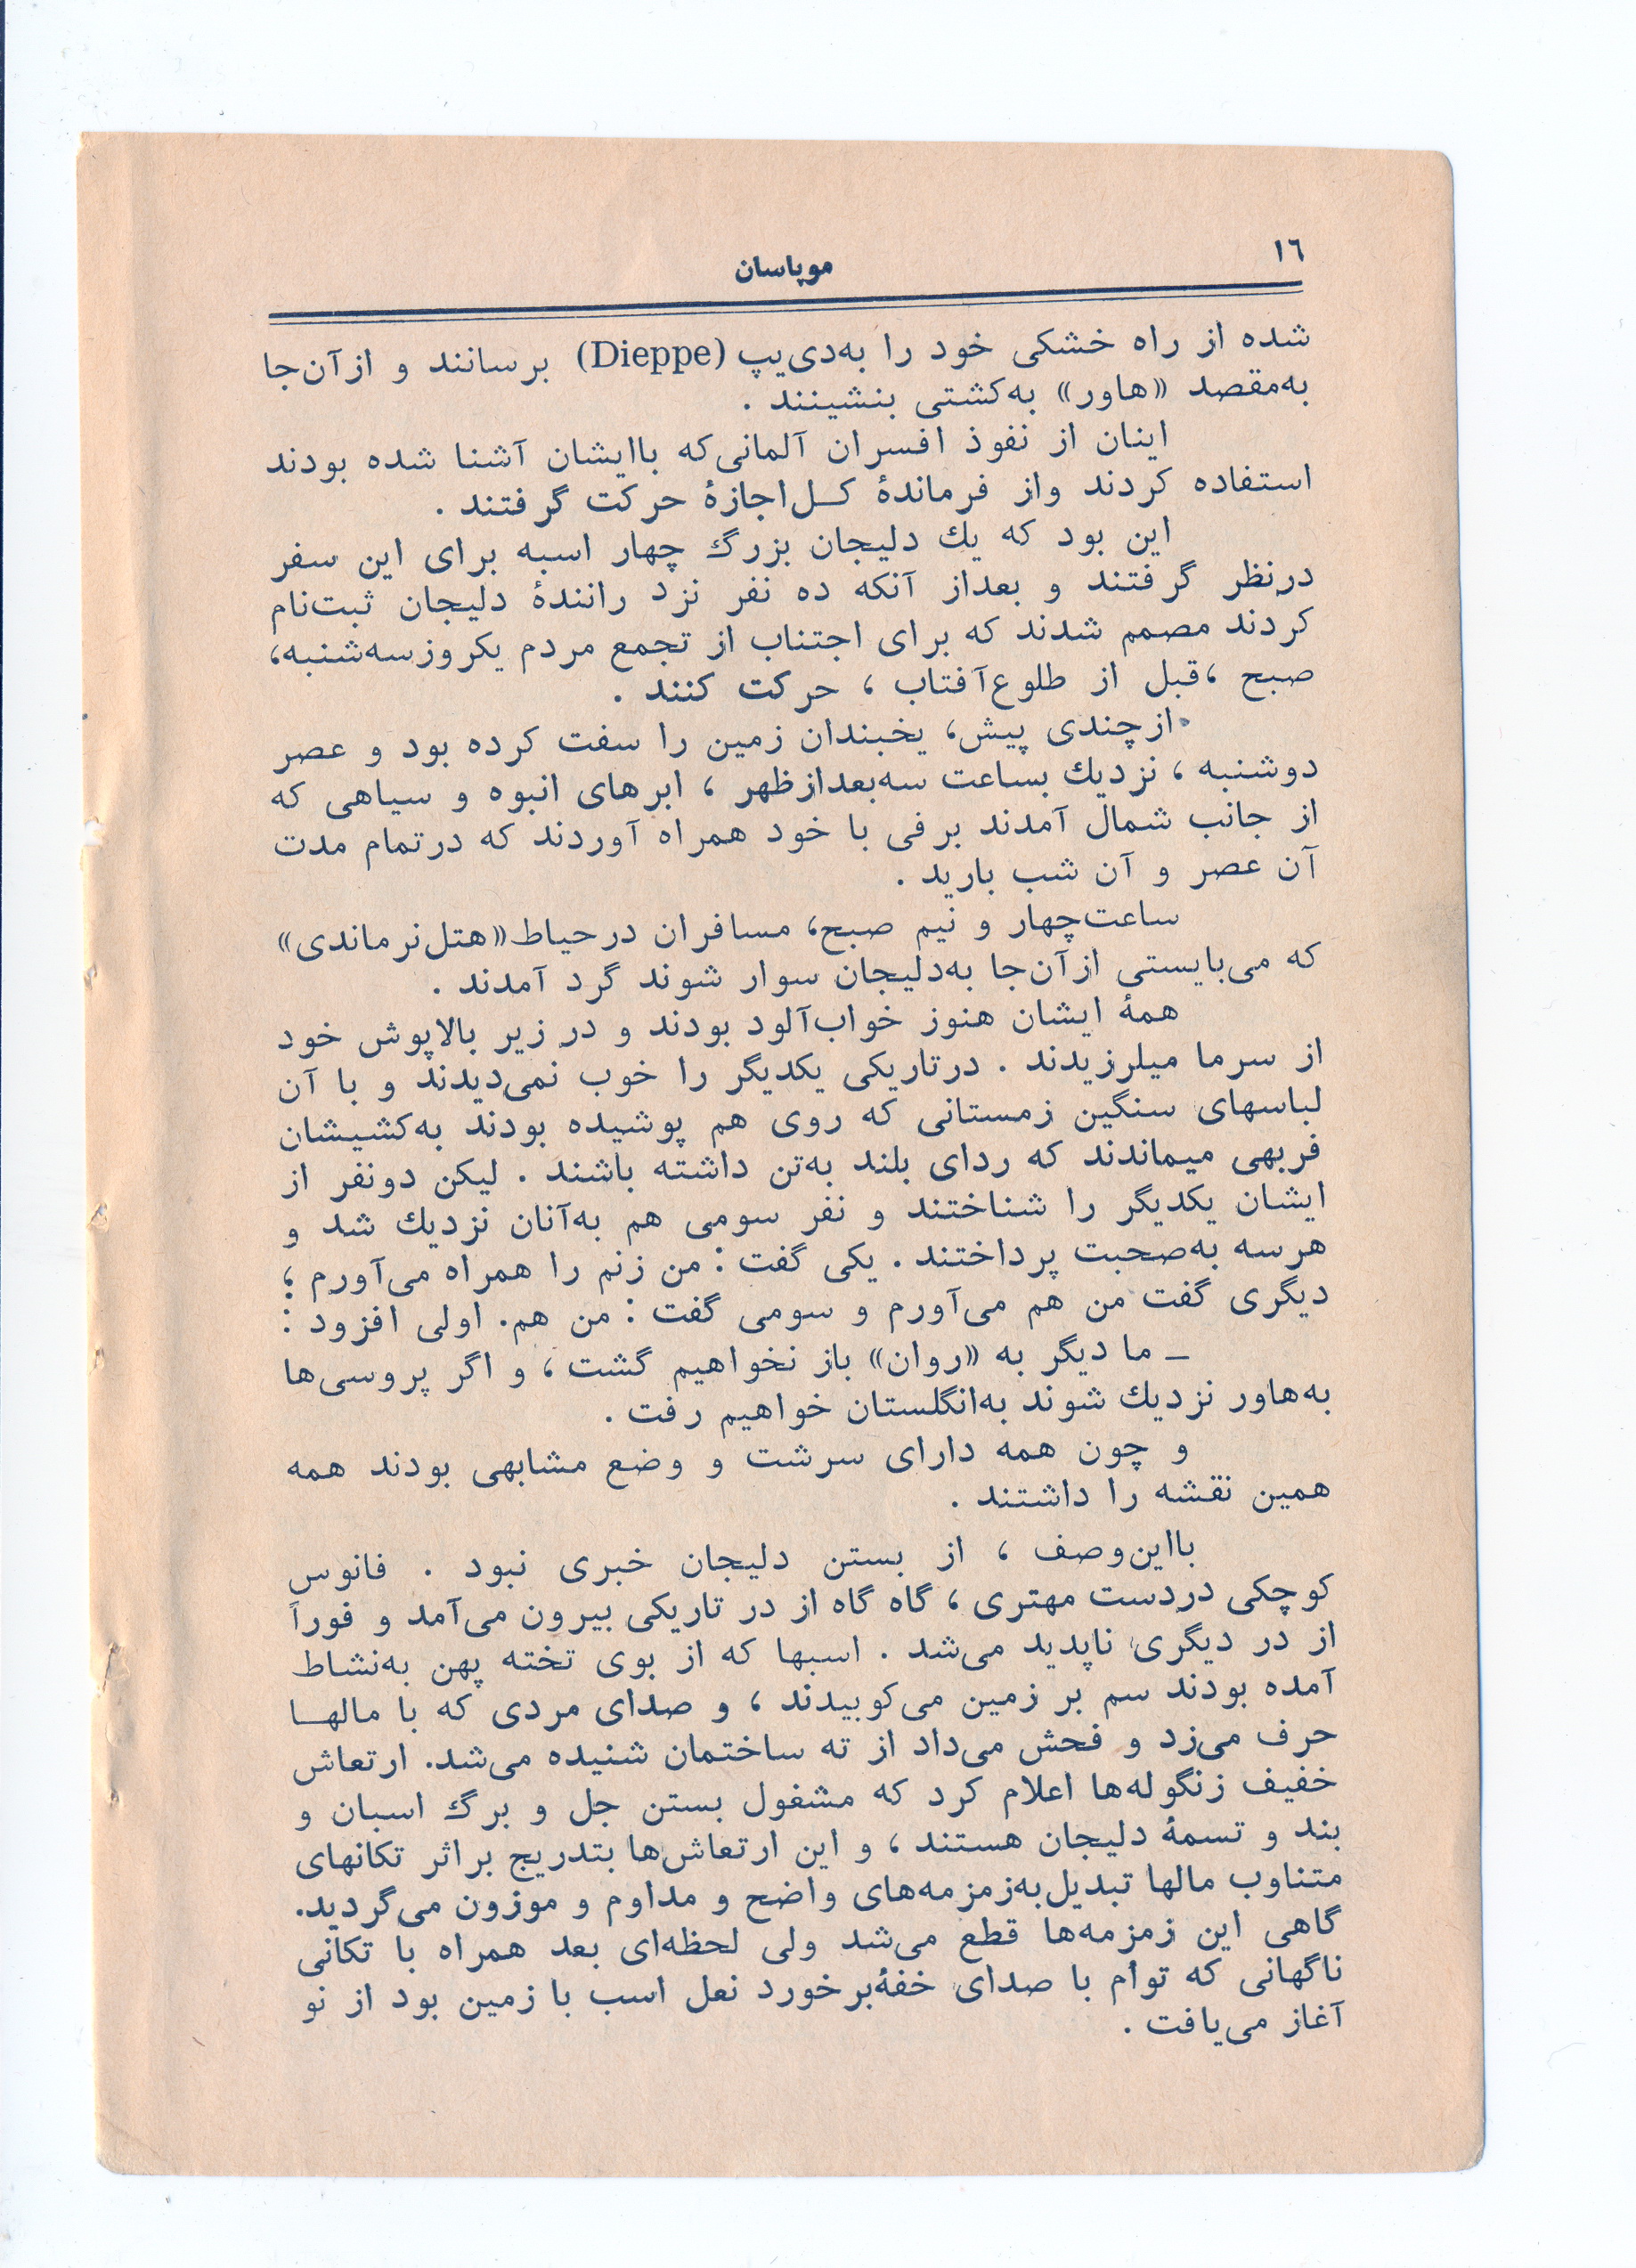 ١٦
موپاسان
شده از راه خشکی خود را به‌دی‌یپ (Dieppe) برسانند و ازآن‌جا
به‌مقصد «هاور» به‌کشتی بنشینند .
اینان از نفوذ افسران آلمانی‌که باایشان آشنا شده بودند
استفاده کردند واز فرماندهٔ کــل‌اجازهٔ حرکت گرفتند .
این بود که یك دلیجان بزرگ چهار اسبه برای این سفر
درنظر گرفتند و بعداز آنکه ده نفر نزد رانندهٔ دلیجان ثبت‌نام
کردند مصمم شدند که برای اجتناب از تجمع مردم یکروزسه‌شنبه،
صبح ،قبل از طلوع‌آفتاب ، حرکت کنند .
ازچندی پیش، یخبندان زمین را سفت کرده بود و عصر
دوشنبه ، نزدیك بساعت سه‌بعدازظهر ، ابرهای انبوه و سیاهی که
از جانب شمال آمدند برفی با خود همراه آوردند که درتمام مدت
آن عصر و آن شب بارید .
ساعت‌چهار و نیم صبح، مسافران درحیاط«هتل‌نرماندی»
که می‌بایستی ازآن‌جا به‌دلیجان سوار شوند گرد آمدند .
همهٔ ایشان هنوز خواب‌آلود بودند و در زیر بالاپوش خود
از سرما میلرزیدند . درتاریکی یکدیگر را خوب نمی‌دیدند و با آن
لباسهای سنگین زمستانی که روی هم پوشیده بودند به‌کشیشان
فربهی میماندند که ردای بلند به‌تن داشته باشند . لیکن دونفر از
ایشان یکدیگر را شناختند و نفر سومی هم به‌آنان نزدیك شد و
هرسه به‌صحبت پرداختند . یکی گفت : من زنم را همراه می‌آورم ؛
دیگری گفت من هم می‌آورم و سومی گفت : من هم. اولی افزود :
ـ ما دیگر به «روان» باز نخواهیم گشت ، و اگر پروسی‌ها
به‌هاور نزدیك شوند به‌انگلستان خواهیم رفت .
و چون همه دارای سرشت و وضع مشابهی بودند همه
همین نقشه را داشتند .
بااین‌وصف ، از بستن دلیجان خبری نبود . فانوس
کوچکی دردست مهتری ، گاه گاه از در تاریکی بیرون می‌آمد و فوراً
از در دیگری ناپدید می‌شد . اسبها که از بوی تخته پهن به‌نشاط
آمده بودند سم بر زمین می‌کوبیدند ، و صدای مردی که با مالهــا
حرف می‌زد و فحش می‌داد از ته ساختمان شنیده می‌شد. ارتعاش
خفیف زنگوله‌ها اعلام کرد که مشغول بستن جل و برگ اسبان و
بند و تسمهٔ دلیجان هستند ، و این ارتعاش‌ها بتدریج براثر تکانهای
متناوب مالها تبدیل‌به‌زمزمه‌های واضح و مداوم و موزون می‌گردید.
گاهی این زمزمه‌ها قطع می‌شد ولی لحظه‌ای بعد همراه با تکانی
ناگهانی که توأم با صدای خفهٔ‌برخورد نعل اسب با زمین بود از نو
آغاز می‌یافت .